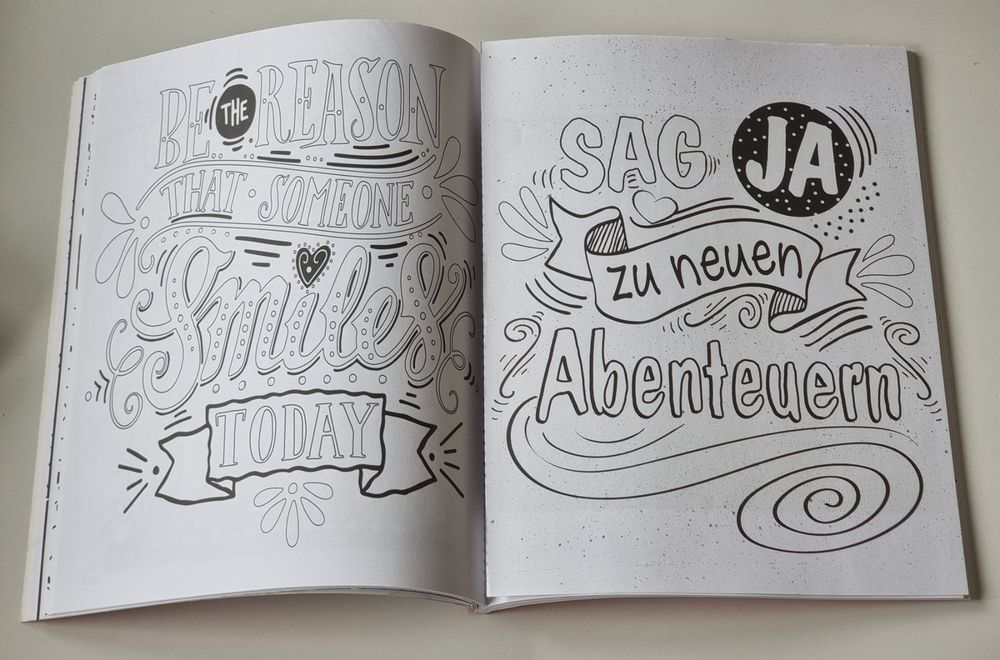 BE THE REASON
THAT SOMEONE
Smiles
TODAY
SAG JA
zu neuen
Abenteuern